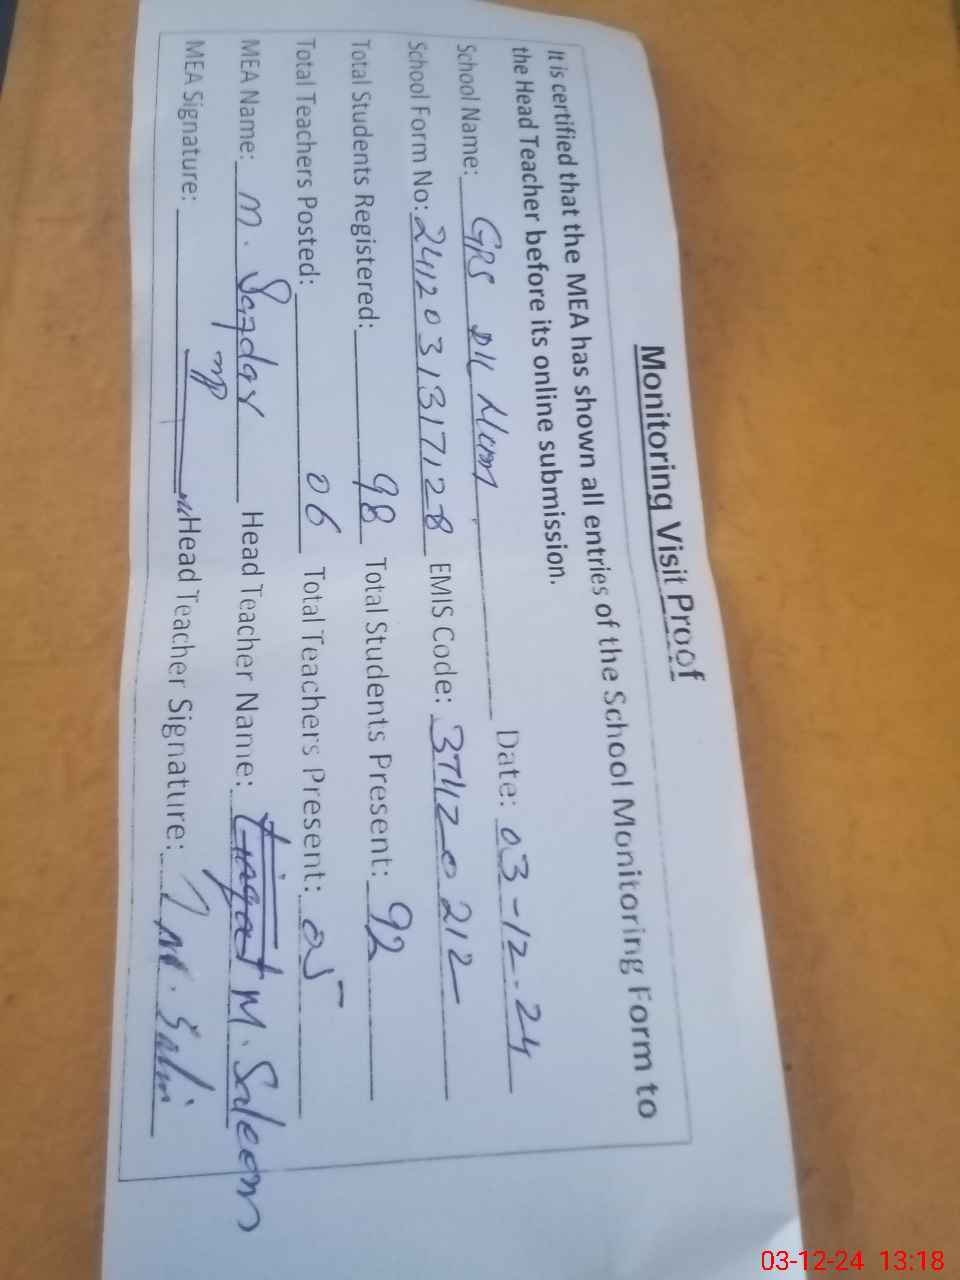 Monitoring Visit Proof
It is certified that the MEA has shown all entries of the School Monitoring Form to
the Head Teacher before its online submission.
School Name: GPS Date: 03-12-24
School Form No: 2412031317128 EMIS Code: 37120212
Total Students Registered: 98 Total Students Present: 92
Total Teachers Posted: 06 Total Teachers Present: 05
MEA Name: M. Safdar Head Teacher Name: M. Saleem
MEA Signature: Head Teacher Signature: M. Salim
03-12-24 13:18